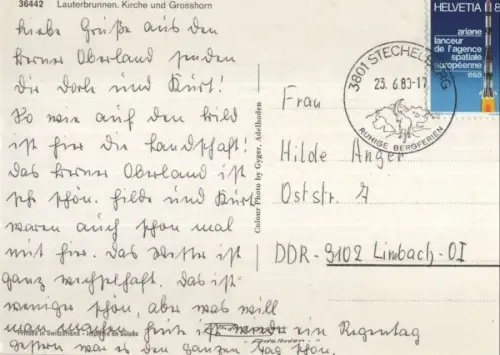 36442 Lauterbrunnen. Kirche und Grosshorn
Liebe Grüße aus den
Berner Oberland senden
Dir Dorle und Kurt!
So wie auf den Bild
ist hier die Landschaft!
Das Berner Oberland ist
sehr schön. Hilde und Kurt
waren auch schon mal
mit hier. Das Wetter ist
ganz wechselhaft. Das ist
weniger schön, aber was will
man machen heute ist wieder ein Regentag
gestern war es den ganzen Tag schön.
Printed in Switzerland - Imprimé en Suisse
Colour Photo by Gyger, Adelboden
Adelboden
HELVETIA 8
ariane
lanceur
de l'agence
spatiale
européenne
esa
3801 STECHELBERG
23. 6.80-17
RUHIGE BERGFERIEN
Frau
Hilde Anger
Oststr. 7
DDR-9102 Limbach-OI